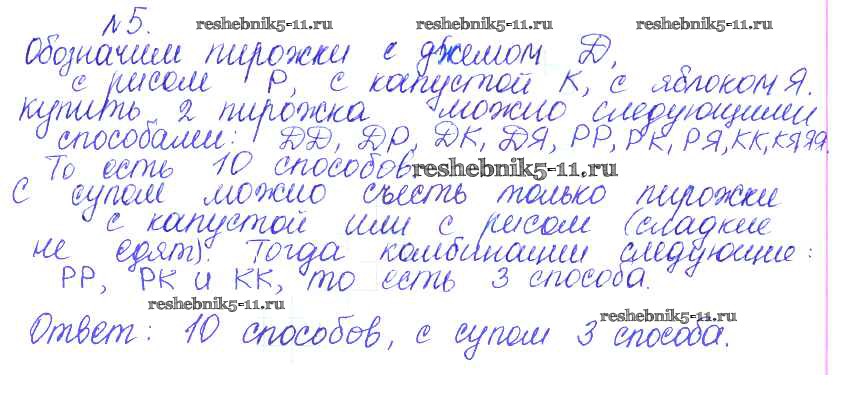 №5. reshebnik5-11.ru reshebnik5-11.ru reshebnik5-11.ru
Обозначим пирожки с джемом Д,
с рисом Р, с капустой К, с яблоком Я.
купить 2 пирожка можно следующими
способами: ДД, ДР, ДК, ДЯ, РР, РК, РЯ, КК, КЯ, ЯЯ.
То есть 10 способов. reshebnik5-11.ru
С супом можно съесть только пирожки
с капустой или с рисом (сладкие
не едят). Тогда комбинации следующие:
РР, РК и КК, то есть 3 способа.
reshebnik5-11.ru reshebnik5-11.ru
Ответ: 10 способов, с супом 3 способа.